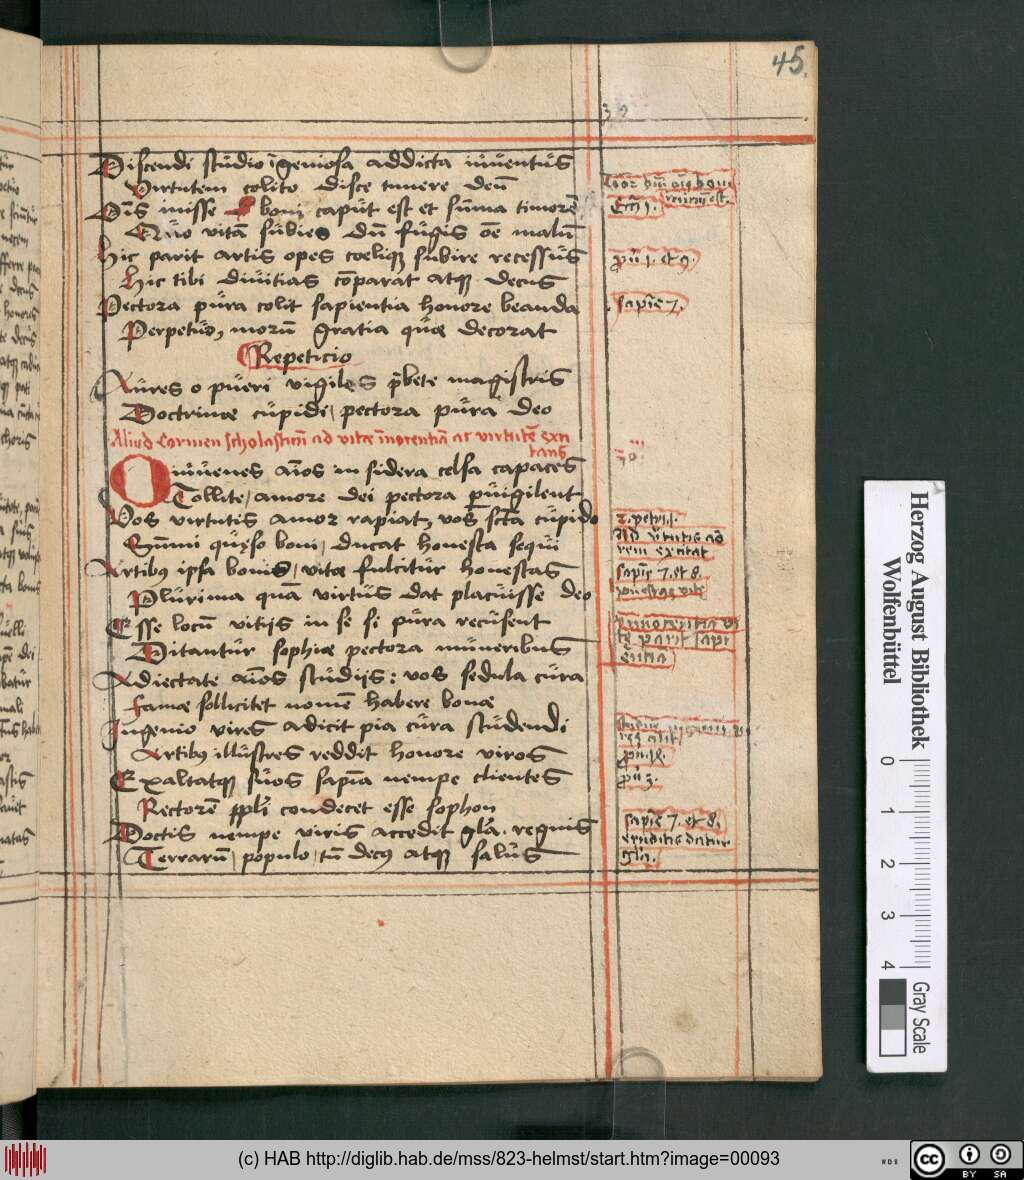 45.
Discendi studio īgeniosa addicta iuventus
Virtutem colito disce timere deū
Eius inisse boni caput est et sūma timorē
vitā subies dū fugis oē malū
Hic parit artis opes coeliqꝫ subire recessus
Hic tibi divitias cōparat atqꝫ decus
Pectora pura colit sapientia honore beanda
Perpetuo, morū gratia quae decorat
Repeticio
Aures o pueri vigiles p̄bete magistris
Doctrinae cupidi, pectora pura deo
Aliud Carmen scholasticū ad vitae īnocentiā ac virtutē exci
tans
O iuvenes aīos in sidera celsa capaces
Tollite, amore dei pectora pervigilent
Vos virtutis amor rapiat, vos scta cupido
Sūmi quęso boni, ducat honesta sequi
Artibus ipsa bonis, vitae fulcitur honestas
Plurima quā virtus dat placuisse deo
Esse locū vitijs in se si pura recusent
Ditantur sophiae pectora muneribus
Adiectate aīos studijs: vos sedula cura
Famae sollicitet nomē habere bonae
Ingenio vires adicit pia cura studendi
Artibus illustres reddit honore viros
Exaltatqꝫ suos sapīa nempe clientes
Rectorē ppl̄i condecet esse sophon
Doctis nempe viris accedit gl̄a. regnis
Terrarū, populo, tū decus atqꝫ salus
Eccī 1.
pū 1. et 9.
sapīe 7.
2. petri 1.
rem excitat
sapīe 7. et 8.
Innocentia vi
tę parit sapi
entia
pū 3.
sapīe 7. et 8.
eruditis datur
gl̄a.
Herzog August Bibliothek
Wolfenbüttel
0 1 2 3 4
Gray Scale
(c) HAB http://diglib.hab.de/mss/823-helmst/start.htm?image=00093
cc BY SA